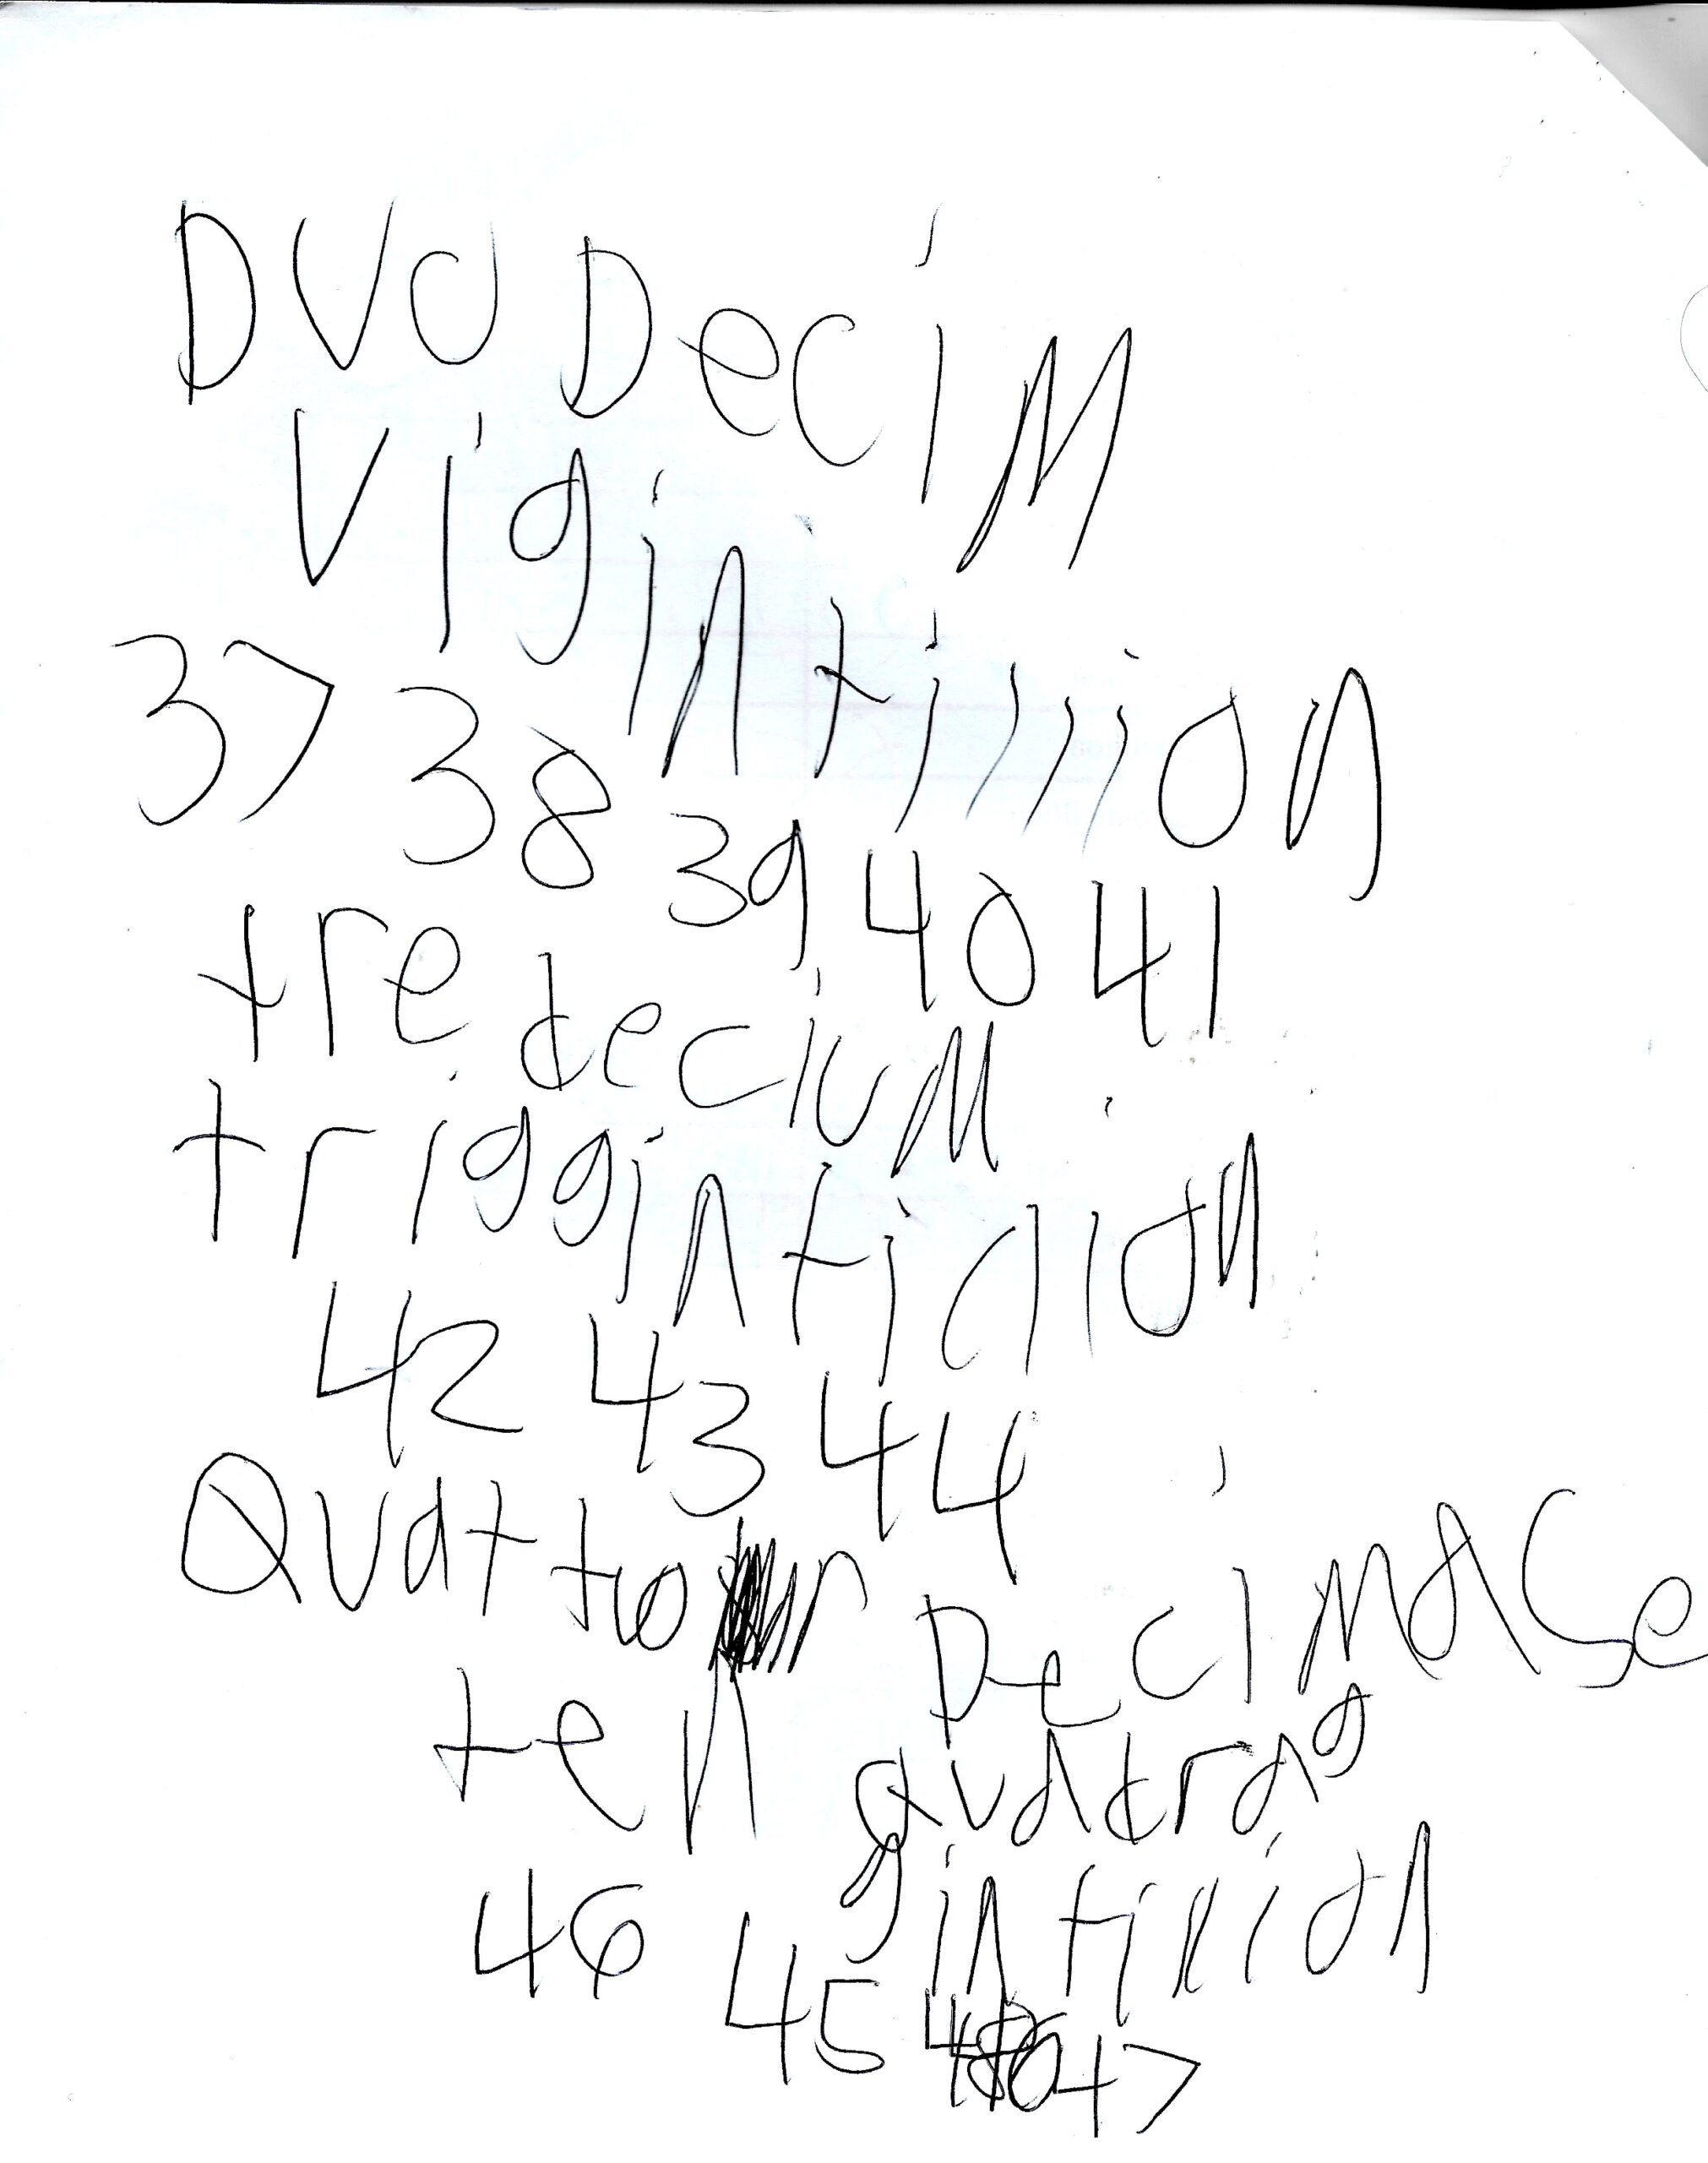 DUO Decim
vigintillion
37 38 39 40 41
tre decium
trigginticlion
42 43 44
Quattuor DecimASe
ten quatrag
gintillion
46 45 47